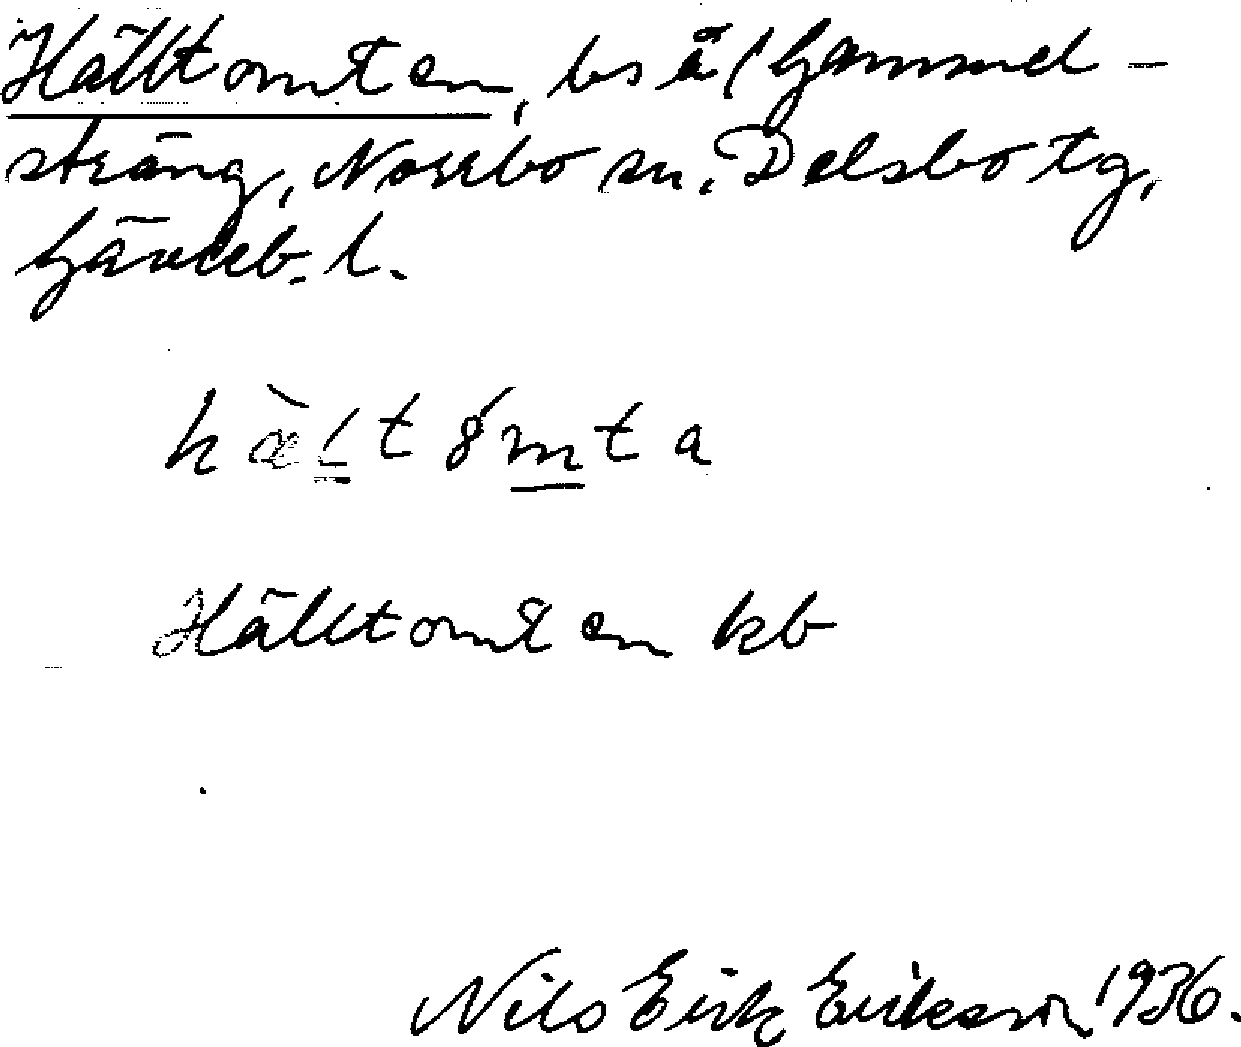 Hälltomten, bs å/Gammel-
sträng, Norrbo sn. Delsbo tg,
Gävleb. l.
hæ̀ltómta
Hälltomten kb
Nils Erik Eriksson 1936.